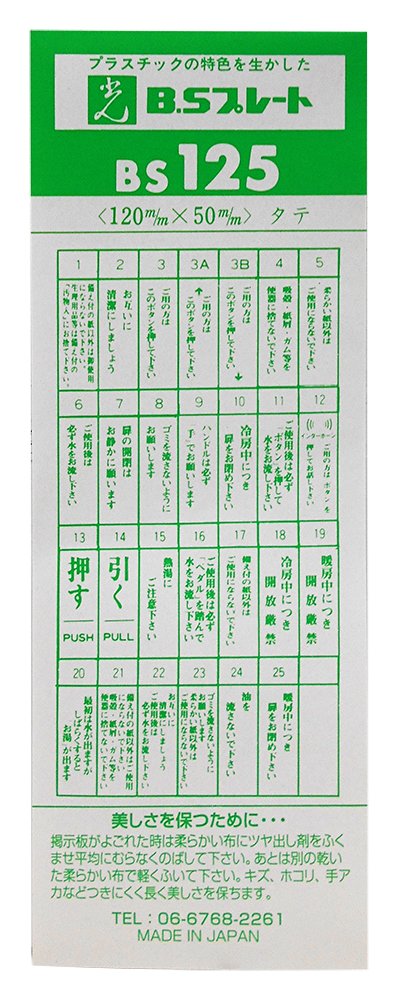 プラスチックの特色を生かした
光 B.Sプレート
BS125
〈120m/m×50m/m〉タテ
1 2 3 3A 3B 4 5
備え付の紙以外は御使用
にならないで下さい。
生理用品等は備え付の
「汚物入」にお捨て下さい。
お互いに
清潔にしましょう
ご用の方は
このボタンを押して下さい
↑
ご用の方は
このボタンを押して下さい
ご用の方は
このボタンを押して下さい
↓
吸殻・紙屑・ガム等を
便器に捨てないで下さい
柔らかい紙以外は
ご使用にならないで下さい
6 7 8 9 10 11 12
ご使用後は
必ず水をお流し下さい
扉の開閉は
お静かに願います
ゴミを流さないように
お願いします
ハンドルは必ず
「手」でお願いします
冷房中につき
扉をお閉め下さい
ご使用後は必ず
「ボタン」を押して
水をお流し下さい
インターホーン
ご用の方はボタンを
押してお話し下さい
13 14 15 16 17 18 19
押す
PUSH
引く
PULL
熱湯に
ご注意下さい
ご使用後は必ず
「ペダル」を踏んで
水をお流し下さい
備え付の紙以外は
ご使用にならないで下さい
冷房中につき
開放厳禁
暖房中につき
開放厳禁
20 21 22 23 24 25
最初は水が出ますが
しばらくすると
お湯が出ます
備え付の紙以外はご使用
にならないで下さい
吸殻・紙屑・ガム等を
便器に捨てないで下さい
お互いに
清潔にしましょう
ご使用後は
必ず水をお流し下さい
ゴミを流さないように
お願いします
柔らかい紙以外は
ご使用にならないで下さい
油を
流さないで下さい
暖房中につき
扉をお閉め下さい
美しさを保つために・・・
掲示板がよごれた時は柔らかい布にツヤ出し剤をふく
ませ平均にむらなくのばして下さい。あとは別の乾い
た柔らかい布で軽くふいて下さい。キズ、ホコリ、手ア
カなどつきにくく長く美しさを保ちます。
TEL：06-6768-2261
MADE IN JAPAN